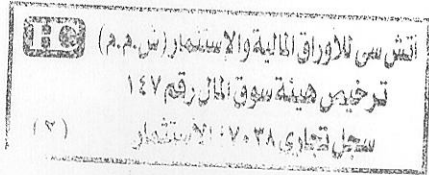 اتش سي للاوراق المالية والاستثمار (ش.م.م) HC
ترخيص هيئة سوق المال رقم ١٤٧
سجل تجارى ٧٠٣٨ الاستثمار (٢)